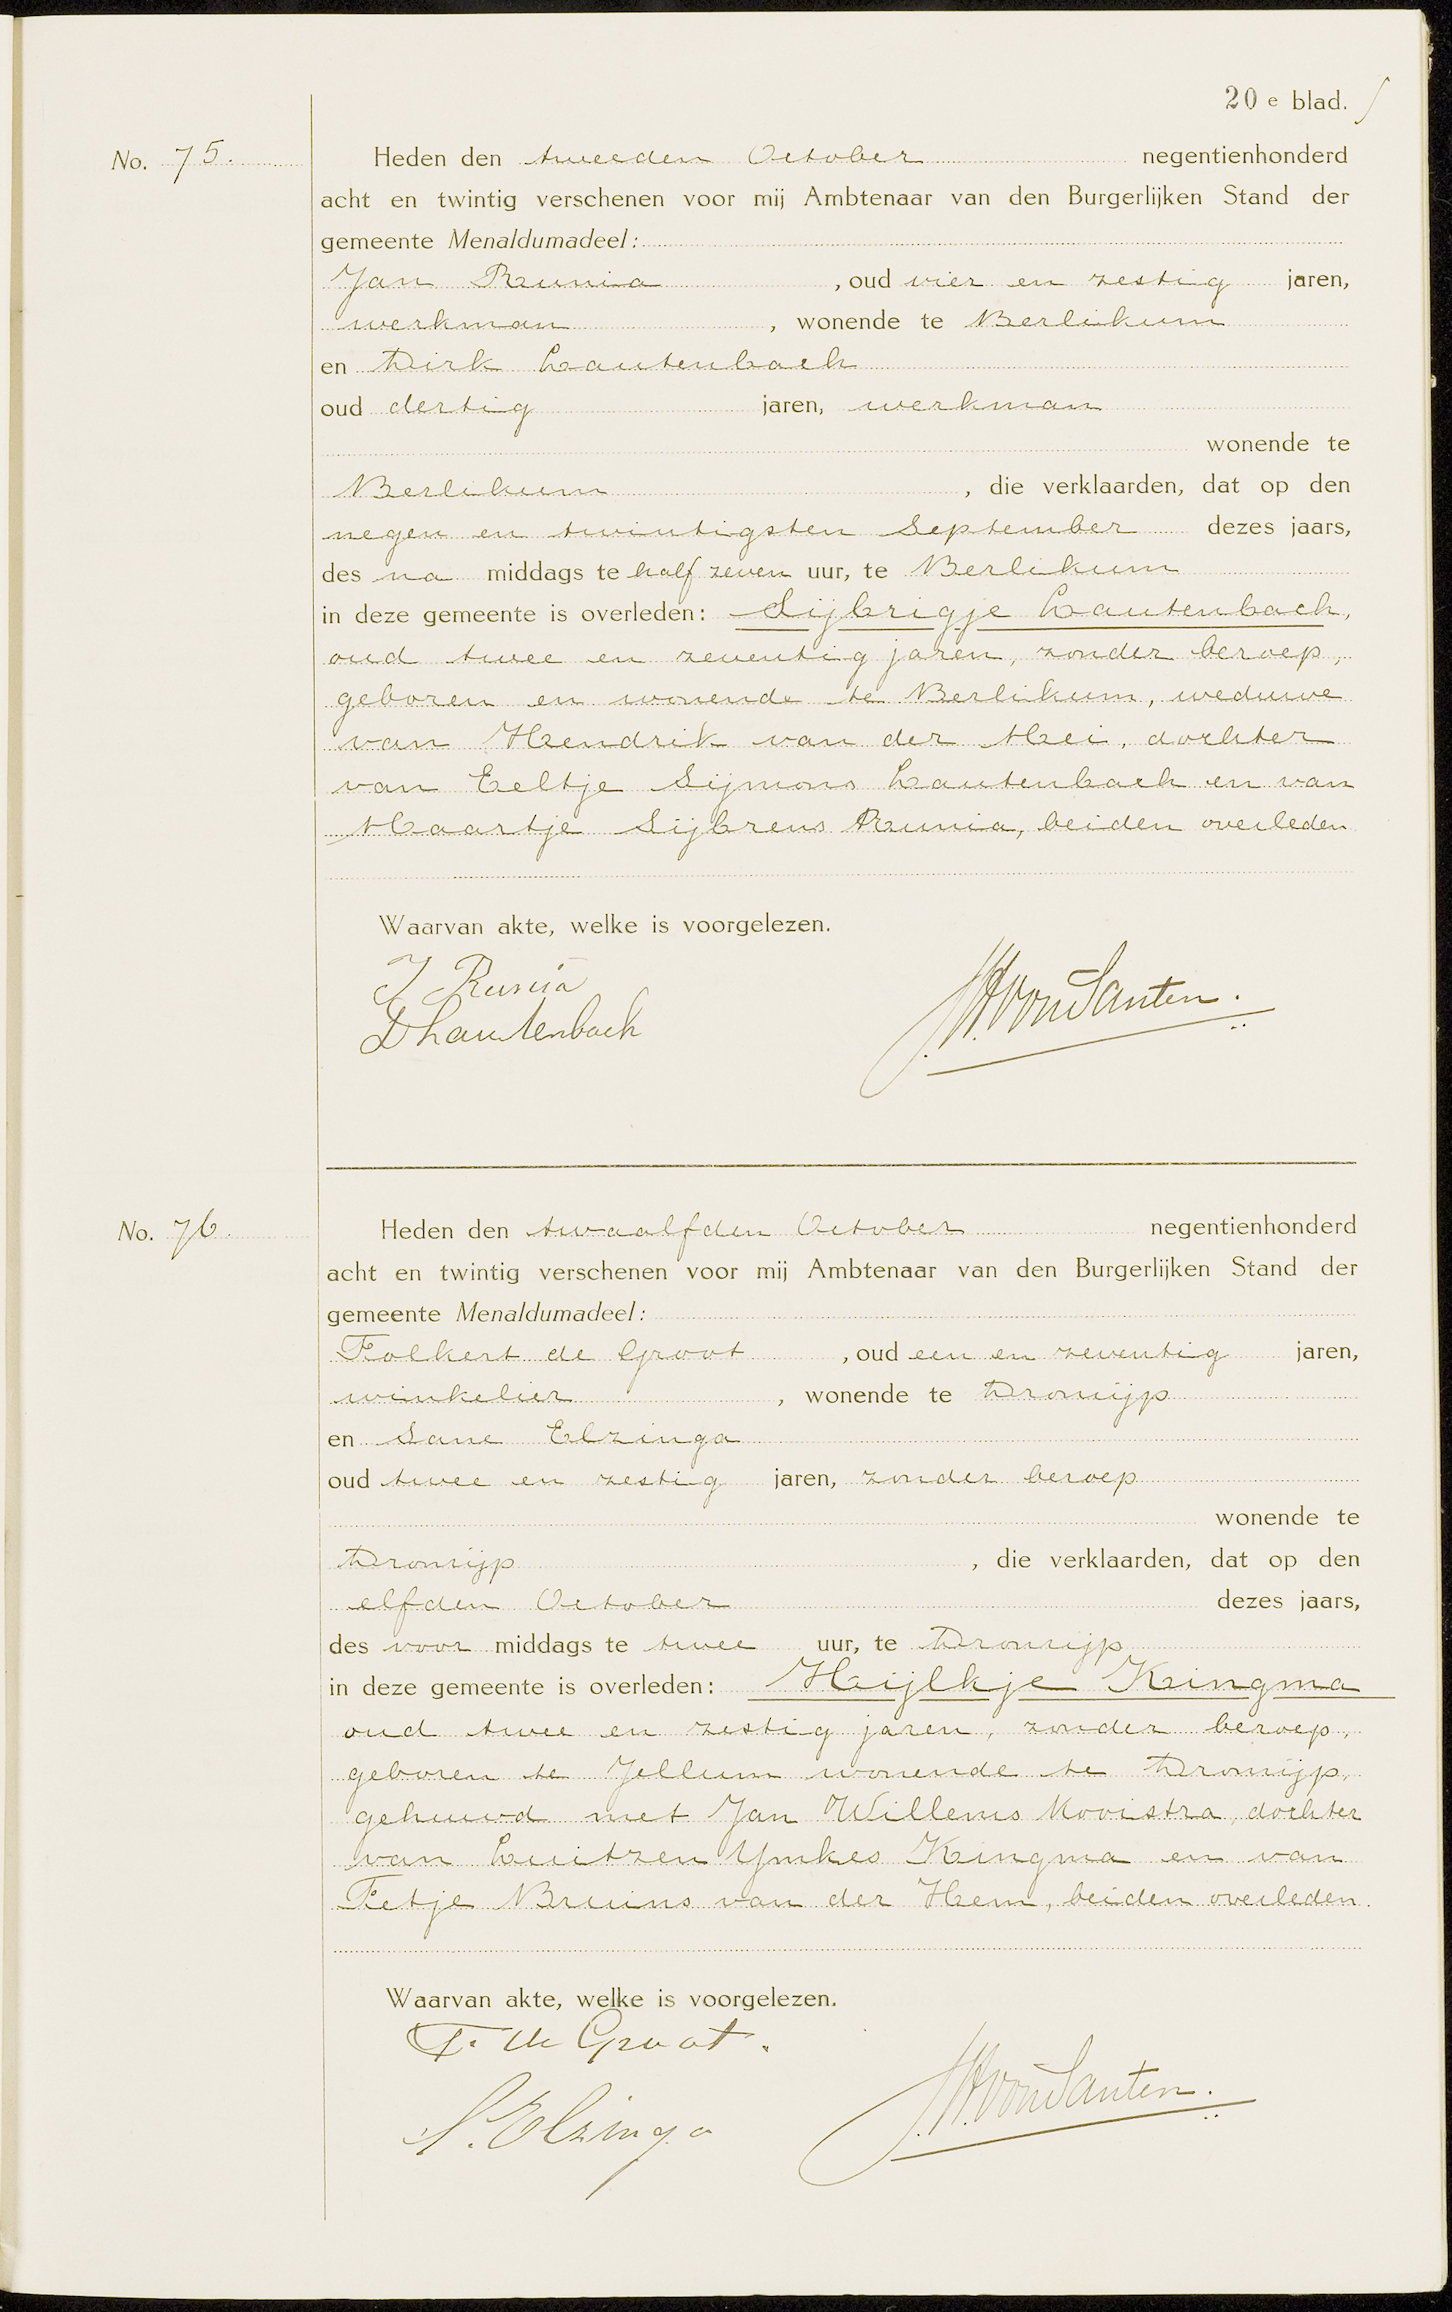 20 e blad.
No. 75.
Heden den tweeden October negentienhonderd
acht en twintig verschenen voor mij Ambtenaar van den Burgerlijken Stand der
gemeente Menaldumadeel:
Jan Runia , oud vier en zestig jaren,
werkman , wonende te Berlikum
en Dirk Lautenbach
oud dertig jaren, werkman
wonende te
Berlikum , die verklaarden, dat op den
negen en twintigsten September dezes jaars,
des na middags te half zeven uur, te Berlikum
in deze gemeente is overleden: Sijbrigje Lautenbach,
oud twee en zeventig jaren, zonder beroep,
geboren en wonende te Berlikum, weduwe
van Hendrik van der Mei, dochter
van Eeltje Sijmons Lautenbach en van
Maartje Sijbrens Runia, beiden overleden
Waarvan akte, welke is voorgelezen.
J Runia
D Lautenbach
JHvonSanten.
No. 76.
Heden den twaalfden October negentienhonderd
acht en twintig verschenen voor mij Ambtenaar van den Burgerlijken Stand der
gemeente Menaldumadeel:
Folkert de Groot , oud een en zeventig jaren,
winkelier , wonende te Dronrijp
en Sane Elzinga
oud twee en zestig jaren, zonder beroep
wonende te
Dronrijp , die verklaarden, dat op den
elfden October dezes jaars,
des voor middags te twee uur, te Dronrijp
in deze gemeente is overleden: Heijlkje Kingma
oud twee en zestig jaren, zonder beroep,
geboren te Jellum wonende te Dronrijp,
gehuwd met Jan Willems Kooistra, dochter
van Luitzen Ymkes Kingma en van
Fetje Bruins van der Hem, beiden overleden.
Waarvan akte, welke is voorgelezen.
F. de Groot.
S. Elzinga
JHvonSanten.